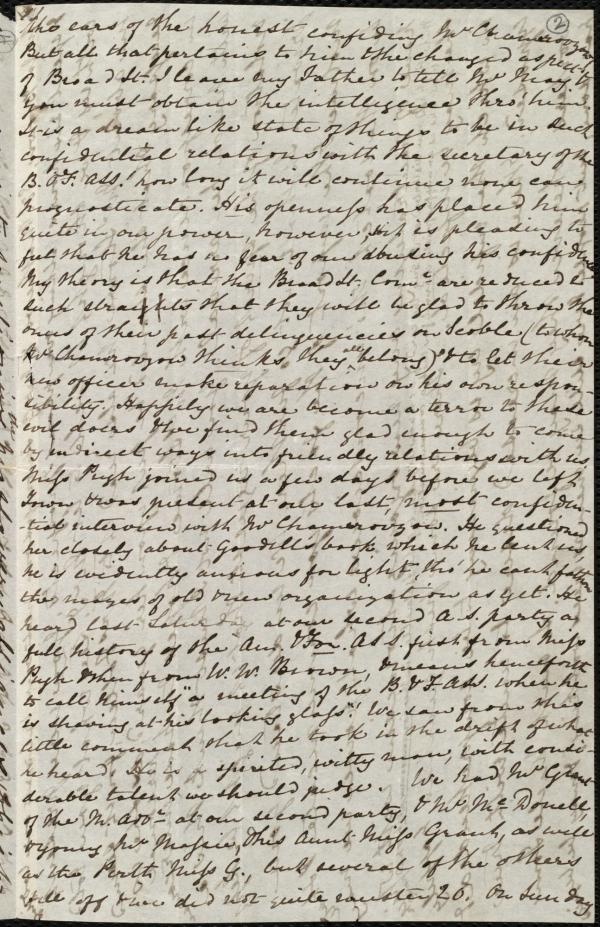 2
the ears of the honest confiding Mr Chamerovzow
But all that pertains to him & the changed aspect
of Broad St. I leave my Father to tell Mr May, &
you must obtain the intelligence thro' him.
It is a dream like state of things to be in such
confidential relations with the secretary of the
B. & F. Ass.! how long it will continue none can
prognosticate. His openness has placed him
quite in our power, however, & it is pleasing to
feel that he has no fear of our abusing his confidence
My theory is that the Broad St. Comee are reduced to
such straights that they will be glad to throw the
onus of their past delinquencies on Scoble (to whom
Mr Chamerovzow thinks they all belong) & to let their
new officer make reparation on his own respon-
sibility. Happily we are become a terror to these
evil doers & we find them glad enough to come
by indirect ways into friendly relations with us.
Miss Pugh joined us a few days before we left
Town & was present at our last, most confiden-
-tial interview with Mr Chamerovzow. He questioned
her closely about Goodell's book, which he lent us,
he is evidently anxious for light, tho' he can't fathom
the mazes of old & new organization as yet. He
heard last Saturday at our second A. S. party a
full history of the Am. & For. A. S. S. first from Miss
Pugh & then from W. W. Brown, & means henceforth
to call himself "a meeting of the B. & F. ASS. when he
is shaving at his looking glass"! We saw from this
little comment that he took in the drift of what
he heard. He is a spirited, witty man, with consi-
derable talent we should judge. We had Mr Grant
of the M. Advr at our second party, & Mr Mc Donell,
& young Mr Massie, & his Aunt Miss Grant, as well
as the Perth Miss G., but several of the others
fell off & we did not quite muster 20. On Sunday